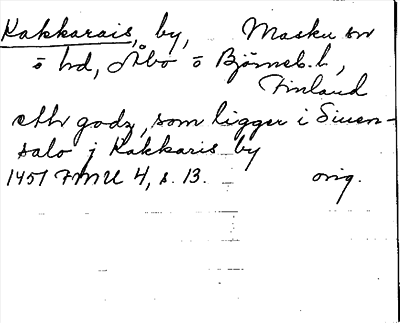 Kakkarais, by, Masku sn
o hd, Åbo o Björneb. l,
Finland
eth godz, som ligger i Siuen-
salo j Kakkaris by
1451 FMU 4, s. 13. orig.